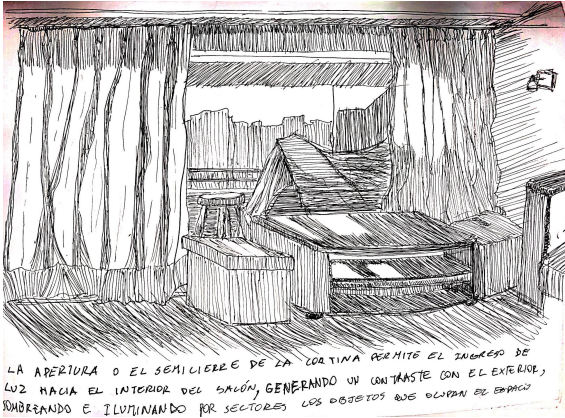 LA APERTURA O EL SEMICIERRE DE LA CORTINA PERMITE EL INGRESO DE
LUZ HACIA EL INTERIOR DEL SALÓN, GENERANDO UN CONTRASTE CON EL EXTERIOR,
SOMBREANDO E ILUMINANDO POR SECTORES LOS OBJETOS QUE OCUPAN EL ESPACIO